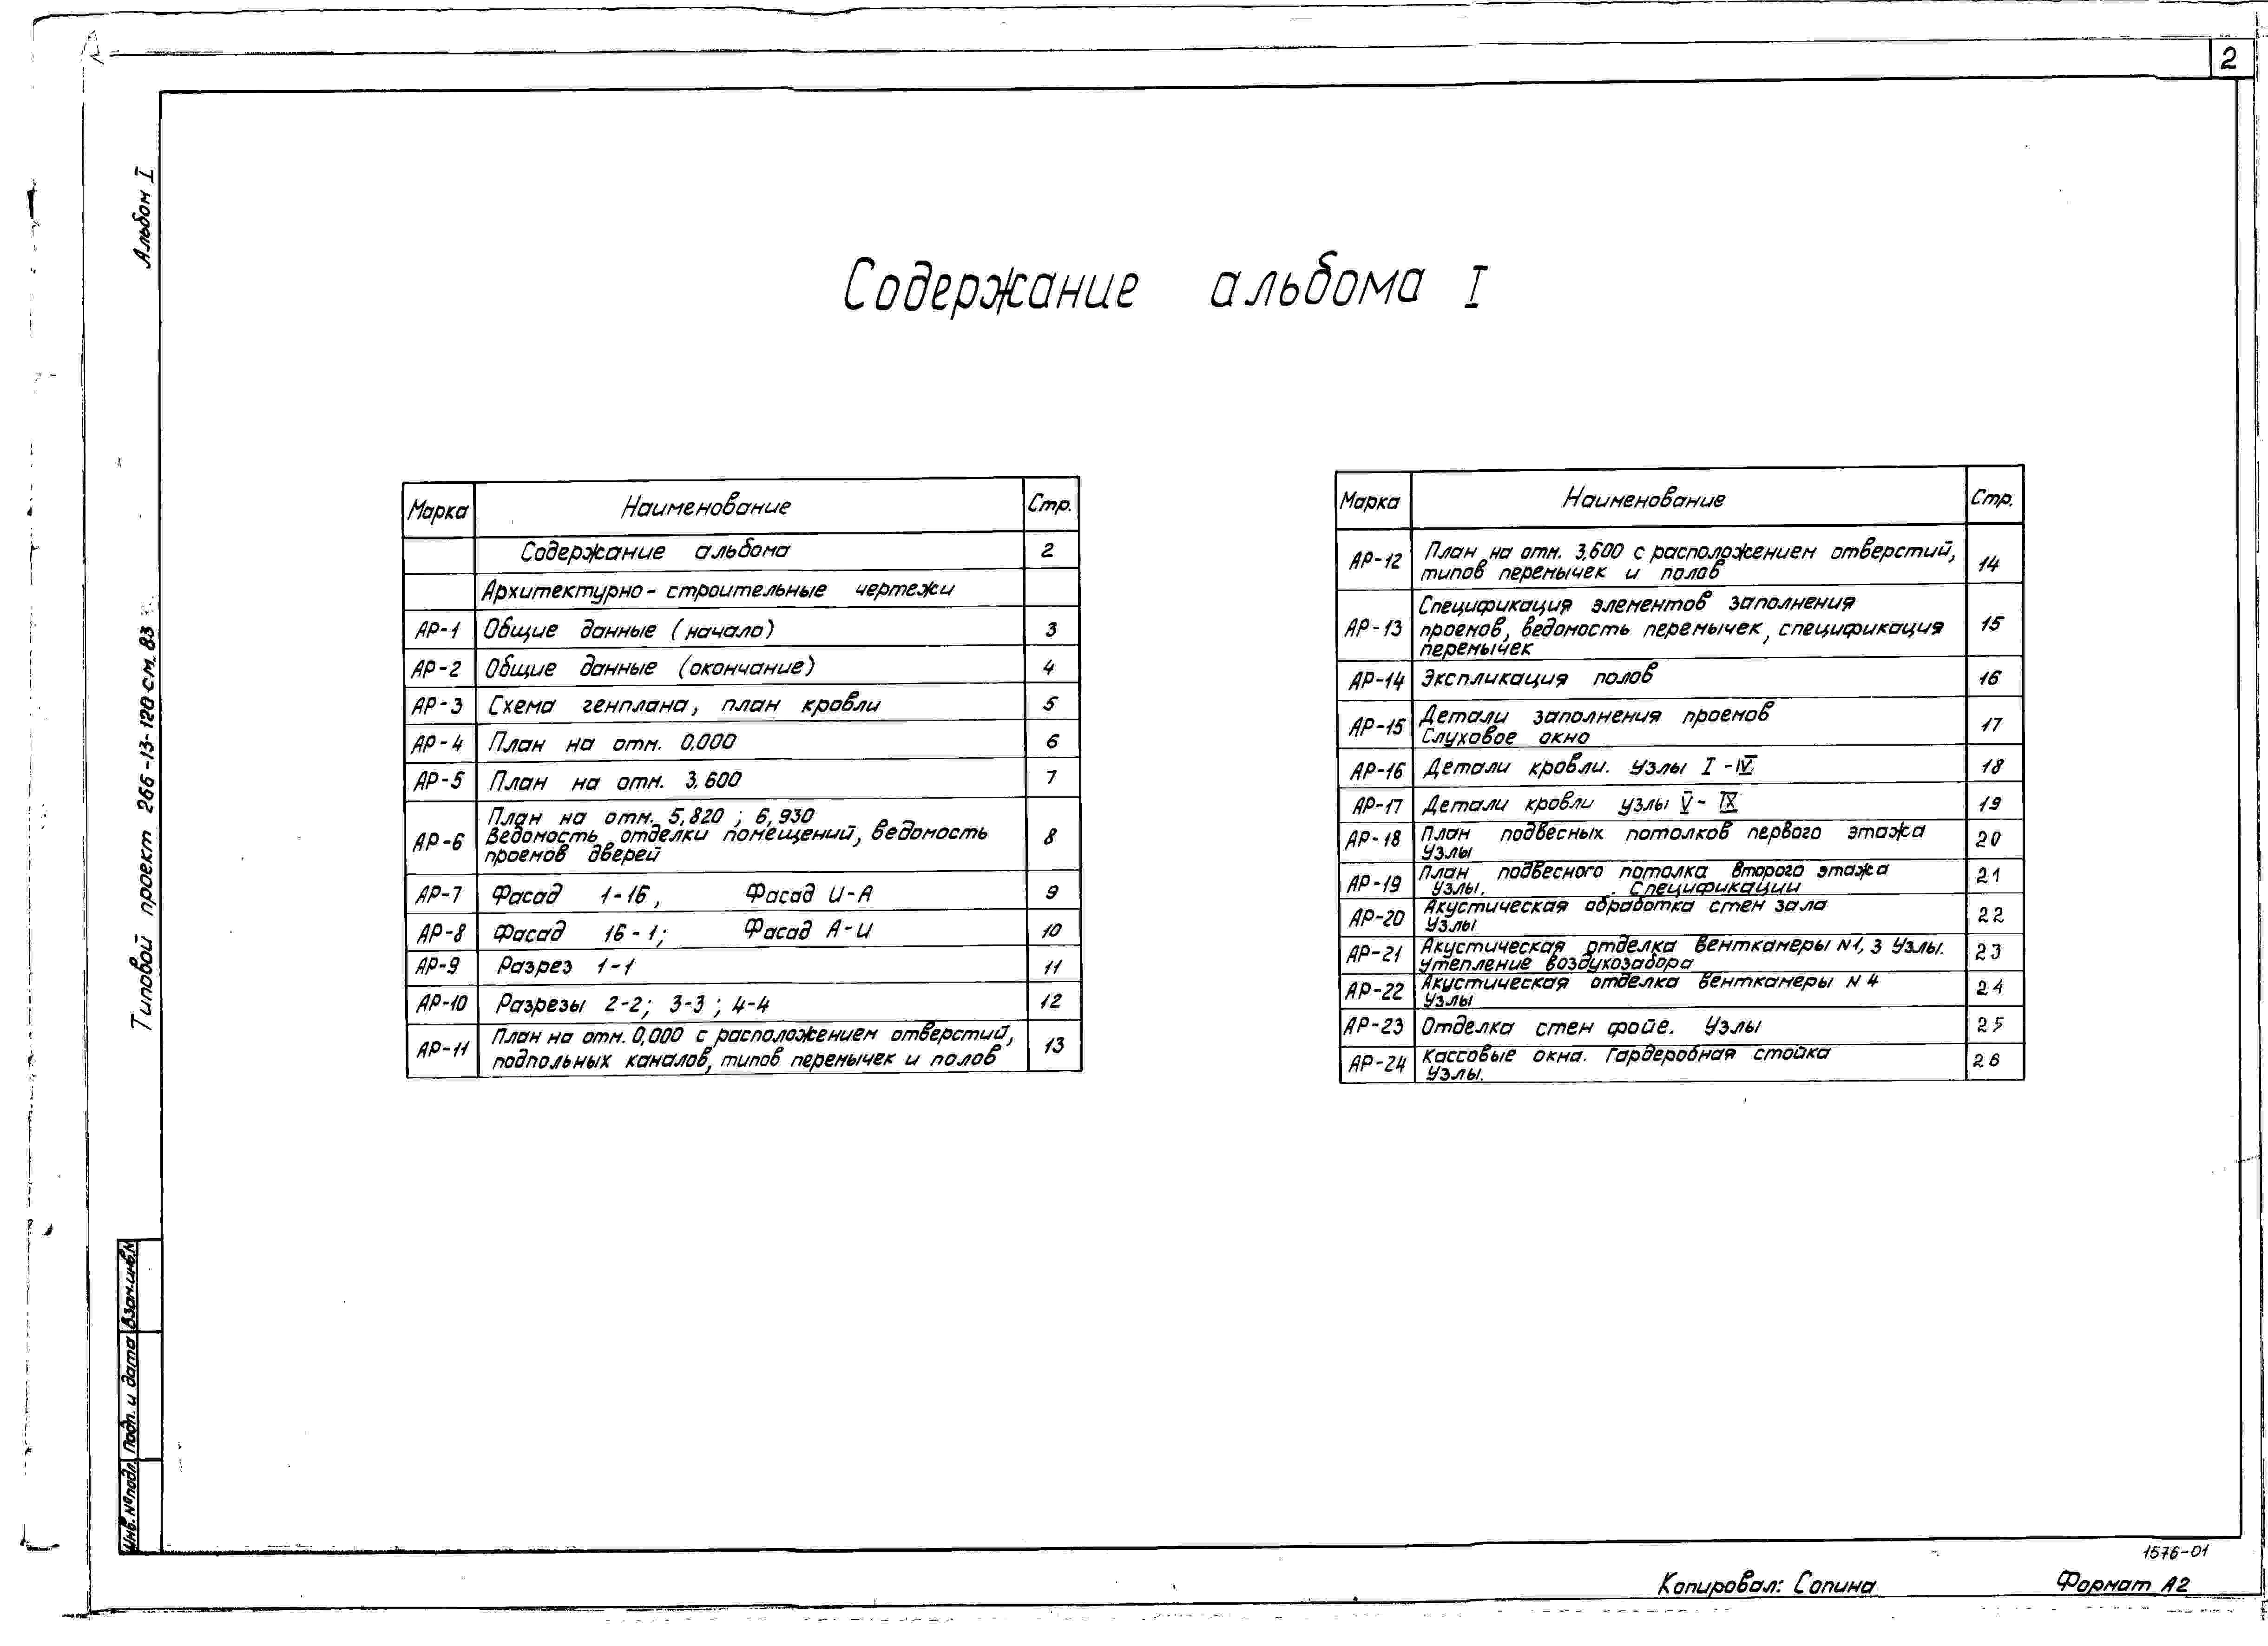 2
Альбом I
Типовой проект 266-13-120 см. 83
Содержание альбома I
Марка Наименование Стр.
Содержание альбома 2
Архитектурно-строительные чертежи
АР-1 Общие данные (начало) 3
АР-2 Общие данные (окончание) 4
АР-3 Схема генплана, план кровли 5
АР-4 План на отм. 0,000 6
АР-5 План на отм. 3,600 7
План на отм. 5,820 ; 6,930
АР-6 Ведомость отделки помещений, ведомость 8
проемов дверей
АР-7 Фасад 1-16, Фасад И-А 9
АР-8 Фасад 16-1; Фасад А-И 10
АР-9 Разрез 1-1 11
АР-10 Разрезы 2-2; 3-3; 4-4 12
АР-11 План на отм. 0,000 с расположением отверстий, 13
подпольных каналов, типов перемычек и полов
Марка Наименование Стр.
АР-12 План на отм. 3,600 с расположением отверстий, 14
типов перемычек и полов
Спецификация элементов заполнения
АР-13 проемов, ведомость перемычек, спецификация 15
перемычек
АР-14 Экспликация полов 16
АР-15 Детали заполнения проемов 17
Слуховое окно
АР-16 Детали кровли. Узлы I-IV. 18
АР-17 Детали кровли узлы V-IX 19
АР-18 План подвесных потолков первого этажа 20
Узлы
АР-19 План подвесного потолка второго этажа 21
Узлы. . Спецификации
АР-20 Акустическая обработка стен зала 22
Узлы
АР-21 Акустическая отделка венткамеры N1, 3 Узлы. 23
Утепление воздухозабора
АР-22 Акустическая отделка венткамеры N 4 24
Узлы
АР-23 Отделка стен фойе. Узлы 25
АР-24 Кассовые окна. Гардеробная стойка 26
Узлы.
Взам.инв.N
Подп. и дата
Инв. № подл.
1576-01
Копировал: Сопина Формат А2